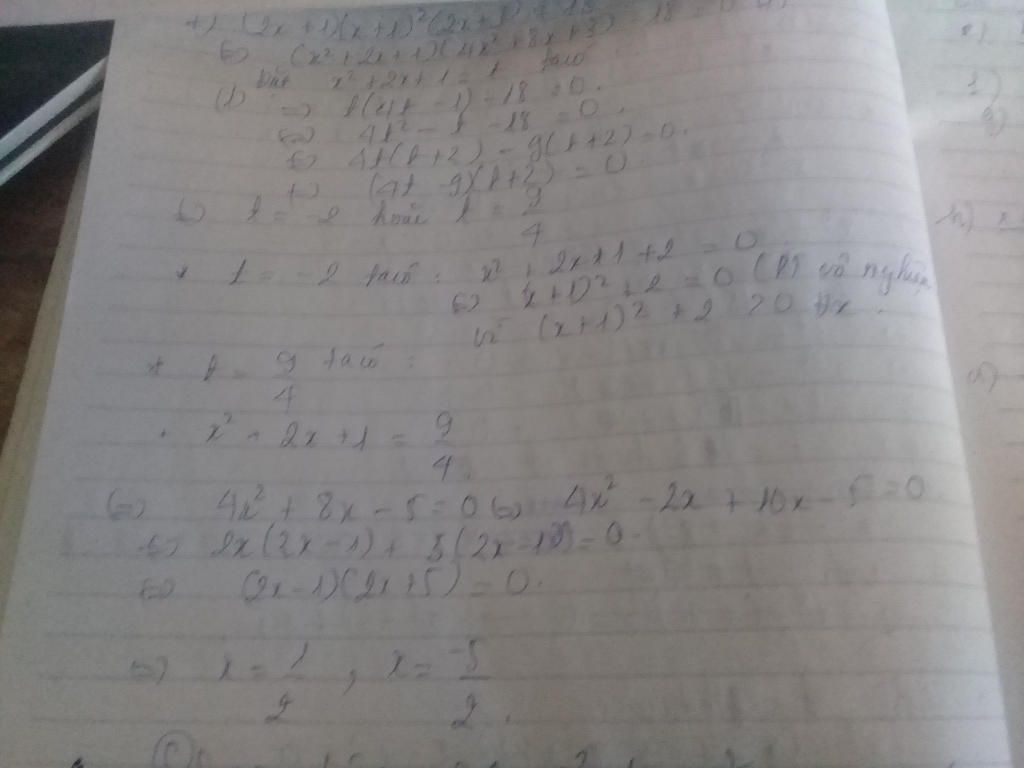 (2x+1)(x+1)²(2x+3) = 18
⇔ (x²+2x+1)(4x²+8x+3) - 18 = 0
Đặt x²+2x+1 = t ta có
(1) => t(4t - 1) - 18 = 0.
⇔ 4t² - t - 18 = 0.
⇔ 4t(t+2) - 9(t+2) = 0.
⇔ (4t-9)(t+2) = 0
⇔ t = -2 hoặc t = 9/4
* t = -2 ta có: x² + 2x+1+2 = 0
⇔ (x+1)² + 2 = 0 (PT vô nghiệm
vì (x+1)² + 2 > 0 ∀x.
* t = 9/4 ta có:
x² + 2x+1 = 9/4.
⇔ 4x² + 8x - 5 = 0 ⇔ 4x² - 2x + 10x - 5 = 0
⇔ 2x(2x-1) + 5(2x-1) = 0.
⇔ (2x-1)(2x+5) = 0.
=> x = 1/2, x = -5/2.